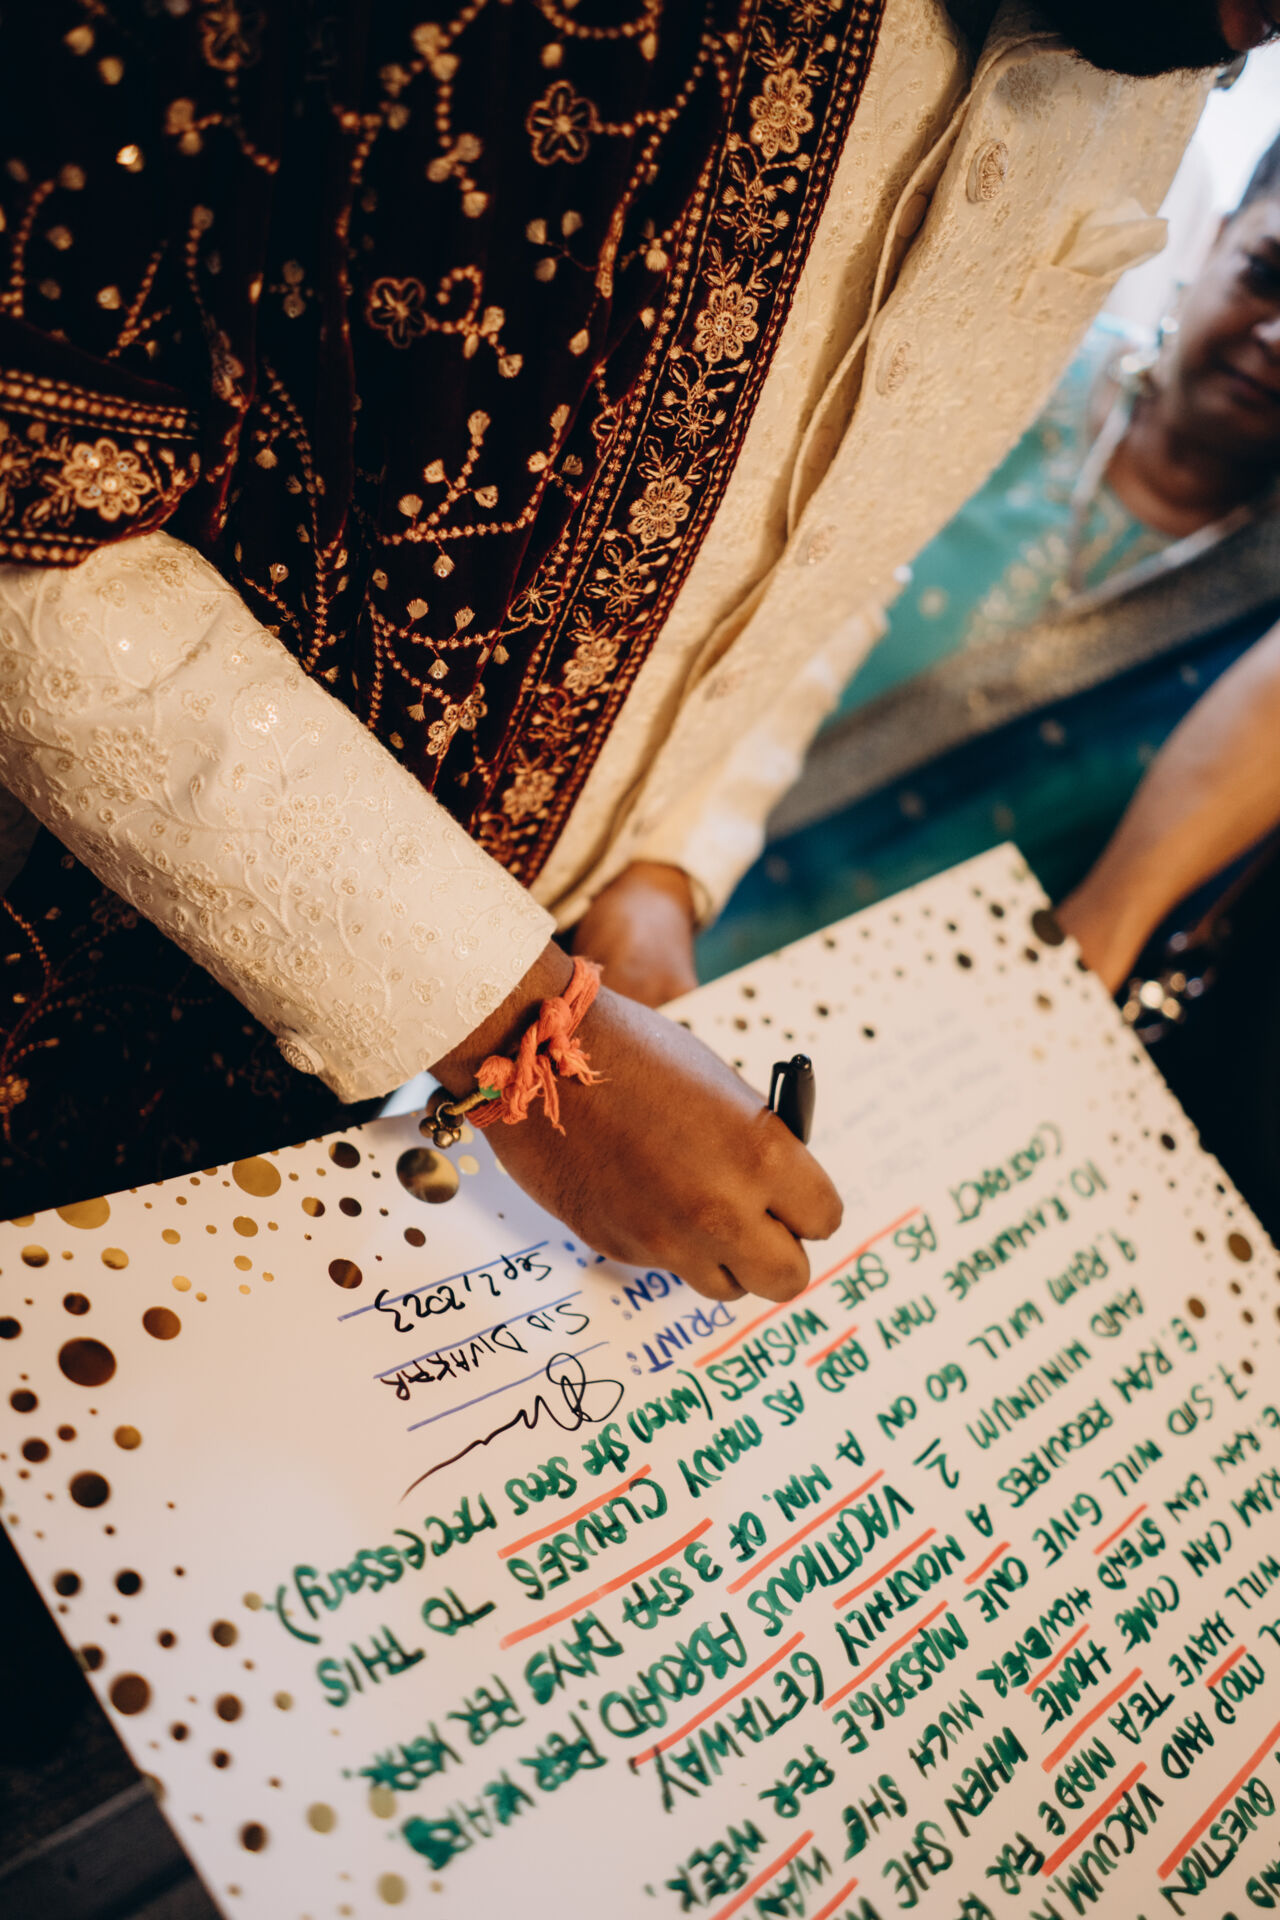 AND
QUESTION
MOP AND VACUUM.
WILL HAVE TEA MADE FOR
RAM CAN COME HOME WHEN SHE
RAM CAN SPEND HOWEVER MUCH SHE WAN
7. SID WILL GIVE ONE MASSAGE PER WEEK.
8. RAM REQUIRES A MONTHLY GETAWAY,
AND MINUMUM 2 VACATIONS ABROAD. PER YEARS.
9. RAM WILL GO ON A MIN. OF 3 SPA DAYS PER YEAR.
10. MAY ADD AS MANY CLAUSES TO THIS
CONTRACT AS SHE WISHES (when she sees necessary).
PRINT:
IGN: SID DIVAKAR
T: Sep 2, 2023